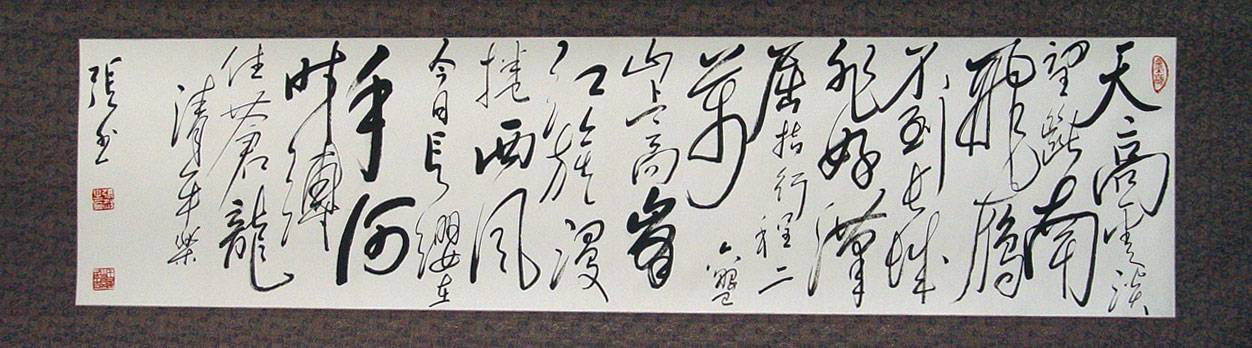 天高雲淡
望斷南
飛雁
不到長城
非好漢
屈指行程二
萬六盤
山上高峰
紅旗漫
捲西風
今日長纓在
手何
時縛
住蒼龍
清平樂
張书